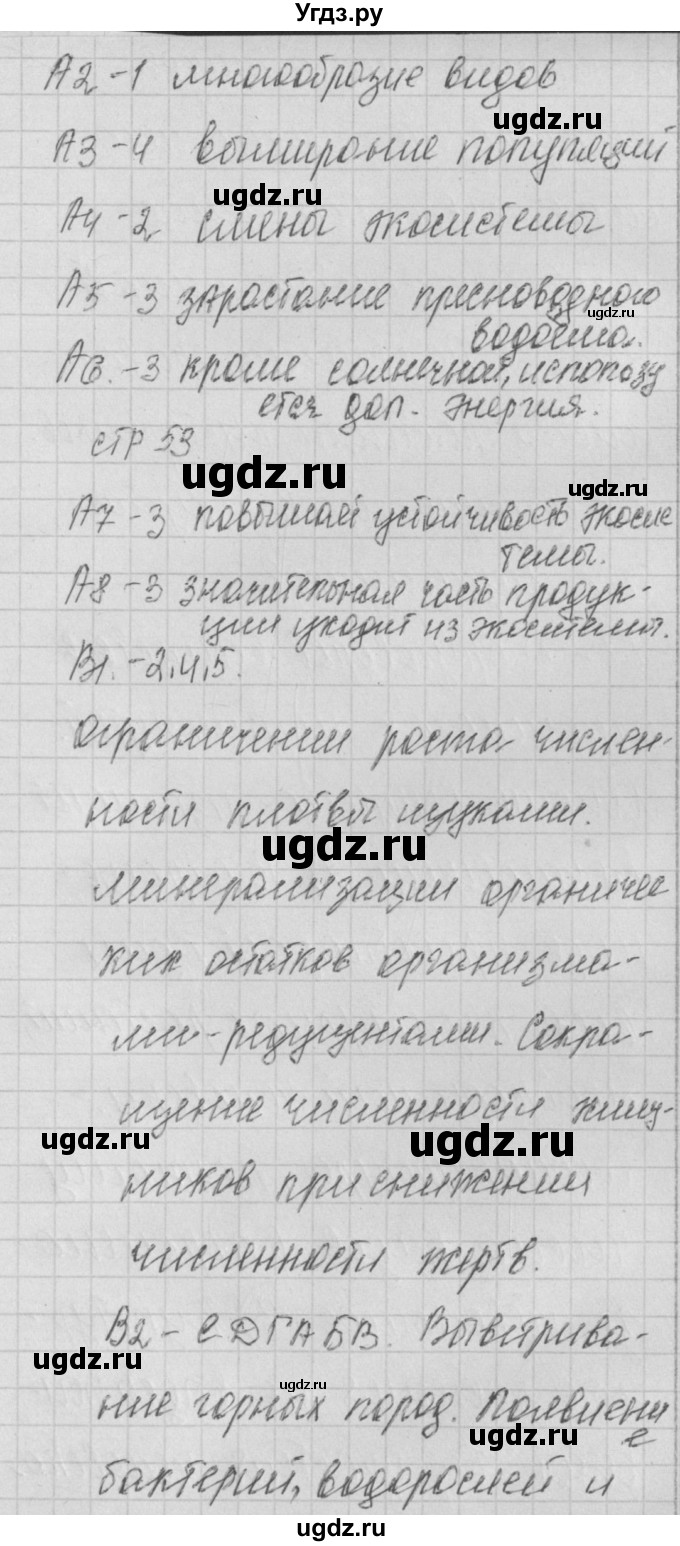 Угдз.ру
А2 -1 многообразие видов
ugdz.ru
А3 -4 вымирание популяций
ugdz.ru
А4 -2 смены экосистемы
А5 -3 зарастание пресноводного
ugdz.ru
водоема.
А6. -3 кроме солнечной, использу
ется доп. энергия.
стр 53
ugdz.ru
ugdz.ru
А7 -3 повышает устойчивость экосис
темы.
А8 -3 значительная часть продук-
ции уходит из экосистемы.
В1. -2,4,5.
ugdz.ru
ограничении роста числен-
ности плотвы щуками.
ugdz.ru
минерализации органичес
ких остатков организма-
ми-редуцентами. Сокра-
щение численности хищ-
ugdz.ru
ugdz.ru
ников при снижении
численности жертв.
В2 - ЕДГАБВ. Выветрива-
ugdz.ru
ugdz.ru
ние горных пород. Появлени
е
ugdz.ru
бактерий, водорослей и
ugdz.ru